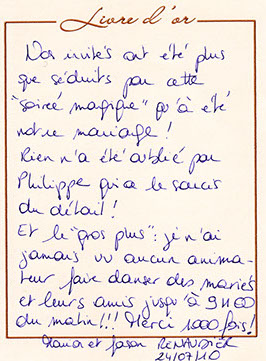 Livre d'or
Nos invités ont été plus
que séduits par cette
"soirée magique" qu'à été
notre mariage !
Rien n'a été oublié par
Philippe qui a le soucis
du détail !
Et le "gros plus" : je n'ai
jamais vu aucun anima-
teur faire danser des mariés
et leurs amis jusqu'à 9H00
du matin !!! Merci 1000 fois !
et Jason RENAUDIER
24/07/10